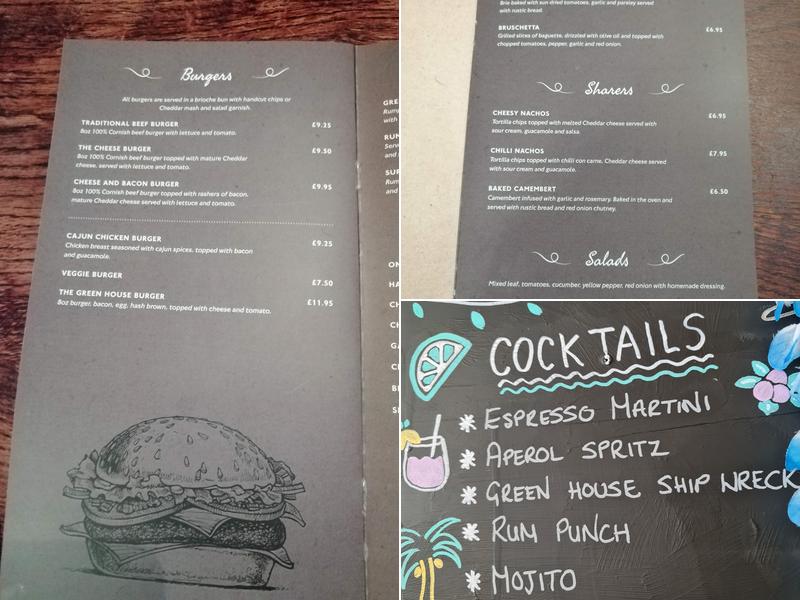 Burgers
All burgers are served in a brioche bun with handcut chips or
Cheddar mash and salad garnish.
TRADITIONAL BEEF BURGER £9.25
8oz 100% Cornish beef burger with lettuce and tomato.
THE CHEESE BURGER £9.50
8oz 100% Cornish beef burger topped with mature Cheddar
cheese, served with lettuce and tomato.
CHEESE AND BACON BURGER £9.95
8oz 100% Cornish beef burger topped with rashers of bacon,
mature Cheddar cheese served with lettuce and tomato.
CAJUN CHICKEN BURGER £9.25
Chicken breast seasoned with cajun spices, topped with bacon
and guacamole.
VEGGIE BURGER £7.50
THE GREEN HOUSE BURGER £11.95
8oz burger, bacon, egg, hash brown, topped with cheese and tomato.
Brie baked with sun dried tomatoes, garlic and parsley served
with rustic bread.
BRUSCHETTA £6.95
Grilled slices of baguette, drizzled with olive oil and topped with
chopped tomatoes, pepper, garlic and red onion.
Sharers
CHEESY NACHOS £6.95
Tortilla chips topped with melted Cheddar cheese served with
sour cream, guacamole and salsa.
CHILLI NACHOS £7.95
Tortilla chips topped with chilli con carne, Cheddar cheese served
with sour cream and guacamole.
BAKED CAMEMBERT £6.50
Camembert infused with garlic and rosemary. Baked in the oven and
served with rustic bread and red onion chutney.
Salads
Mixed leaf, tomatoes, cucumber, yellow pepper, red onion with homemade dressing.
COCKTAILS
* ESPRESSO MARTINI
* APEROL SPRITZ
* GREEN HOUSE SHIP WRECK
* RUM PUNCH
* MOJITO